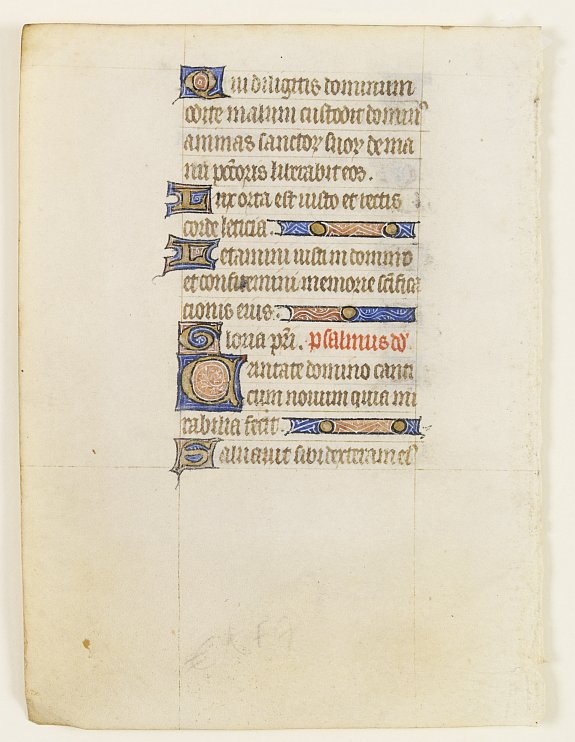 Qui diligitis dominum
odite malum custodit dominꝰ
animas sanctoꝝ suoꝝ de ma
nu pc̄toris liberabit eos.
Lux orta est iusto et rectis
corde leticia.
Letamini iusti in domino
et confitemini memorie sc̄ifica
cionis eius.
Gloria pr̄i. psalmus dd̄
Cantate domino canti
cum nouum quia mi
rabilia fecit.
Saluauit sibi dexteram eiꝰ